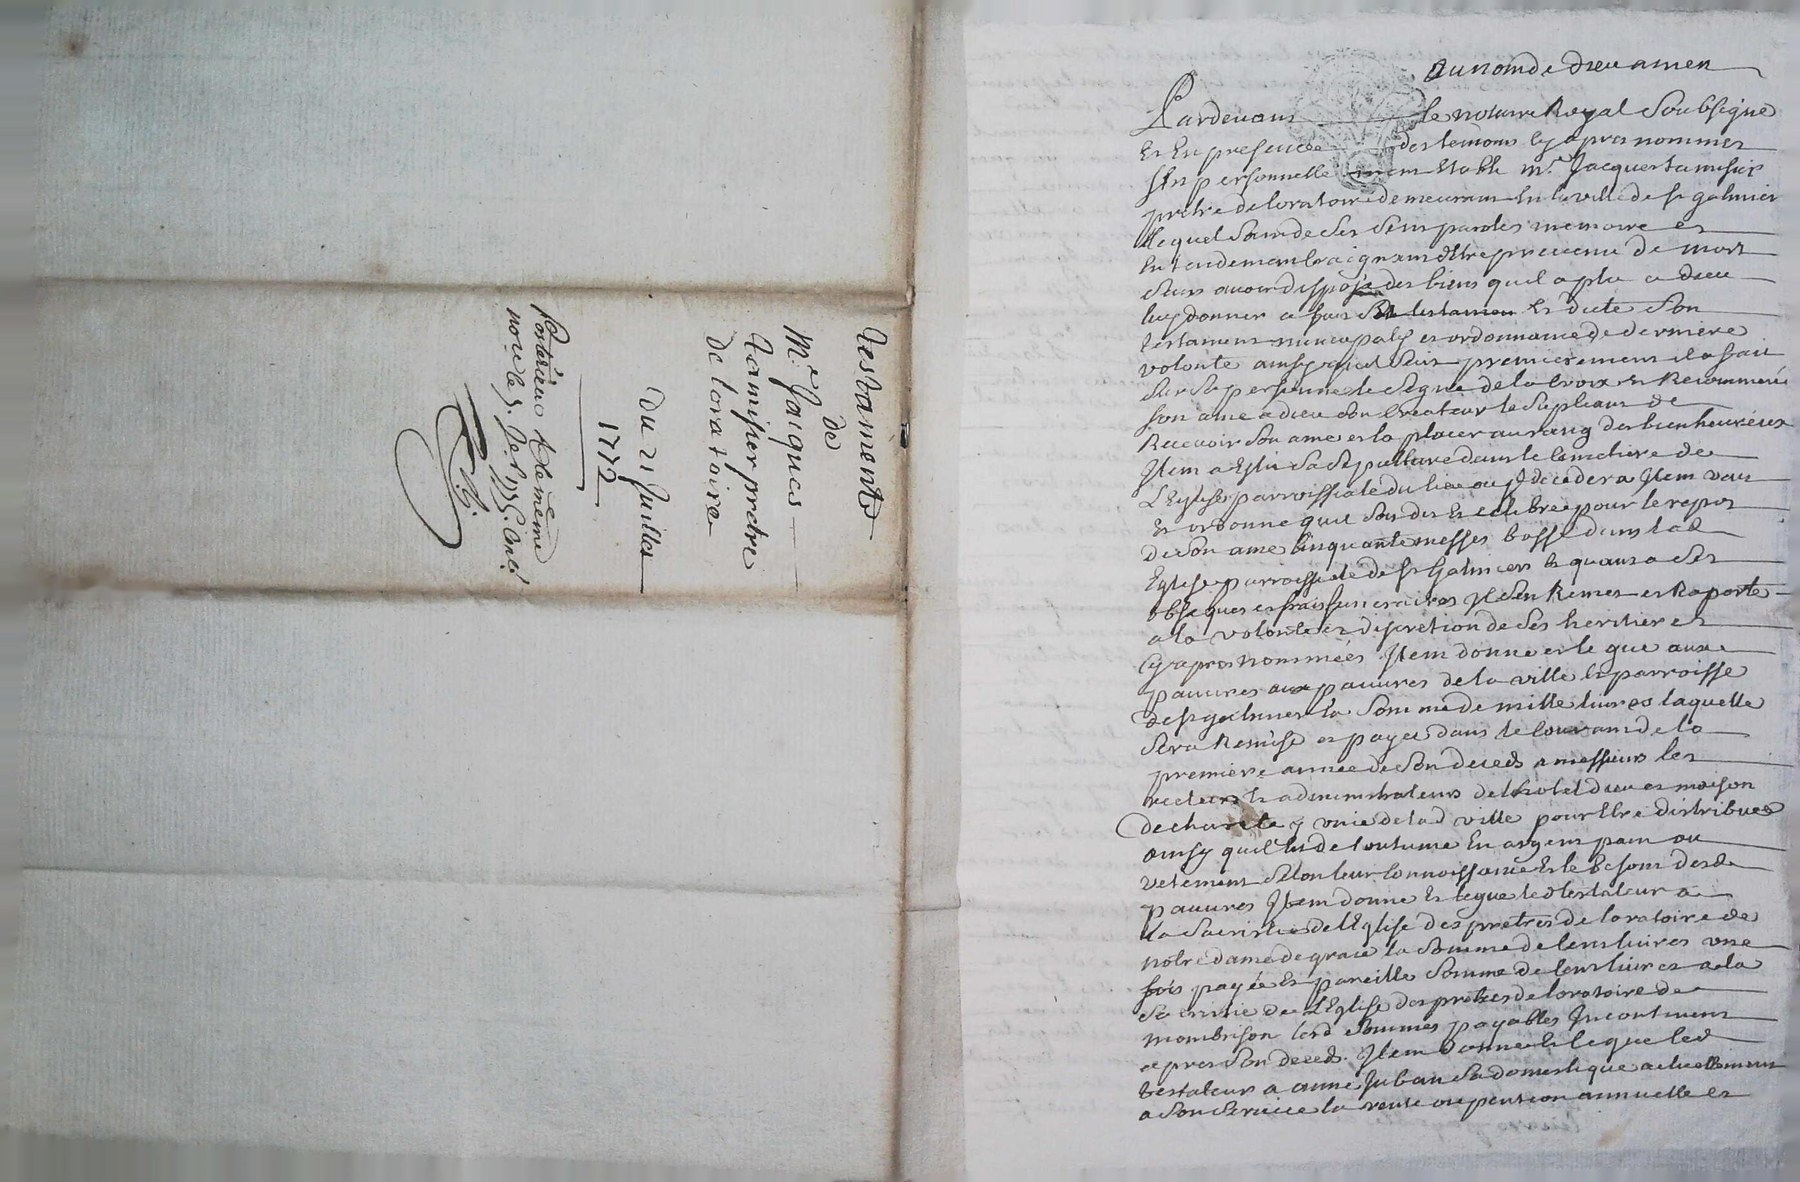 Testament
de
Mre Jacques
tamisier pretre
de loratoire
Du 21 Juillet
1772
Posterieur
Au nom de dieu amen
Pardevant le notaire Royal Soubsigné
Et En presence des temoins cy apres nommes
fut personnellement Etably mr. Jacques tamisier
pretre de loratoire demeurant En la ville de st galmier
lequel Sain de Ses Sens parolles memoire et
Entendement craignant dEtre prevenu de mort
Sans avoir disposé des biens quil a plu a dieu
luy donner a fait Et dicté Son
testament nuncupatif et ordonnance de derniere
volonte ainsy quil Suit premierement il a fait
Sur Sa personne le Signe de la Croix Et Recommandé
Son ame a dieu Son Createur le Supliant de
Recevoir Son ame et la placer au rang des bienheureux
Item a Eslu Sa Sepulture dans le Cimetiere de
LEglise parroissiale du lieu ou Il decedera Item veut
Et ordonne quil Soit dit Et celebré pour le repos
de Son ame Cinquante messes basses dans lad
Eglise parroissiale de St Galmier Et quant a Ses
obseques et frais funeraires Il Sen Remet et Raporte
a la volonté et discretion de Ses heritieres
Cy apres nommées Item donne et legue aux
pauvres aux pauvres de la ville Et parroisse
de St galmier la Somme de mille livres laquelle
Sera Remise et payée dans le Courant de la
premiere année de Son deced a messieurs les
recteurs Et administrateurs de lhotel dieu et maison
de charité y unie de lad ville pour Etre distribuée
ainsy quil Est de Coutume En argent pain ou
vetement Selon leur Connoissance Et le besoin desd
pauvres Item donne Et legue led testateur a
la Sacristie de lEglise des pretres de loratoire de
notre dame de grace la Somme de Cent livres une
fois payée Et pareille Somme de Cent livres a la
Sacristie de LEglise des pretres de loratoire de
montbrison lesd Sommes payables Incontinent
apres Son deced. Item donne Et legue led
testateur a anne Juban Sa domestique actuellement
a Son Service la rente ou pention annuelle et